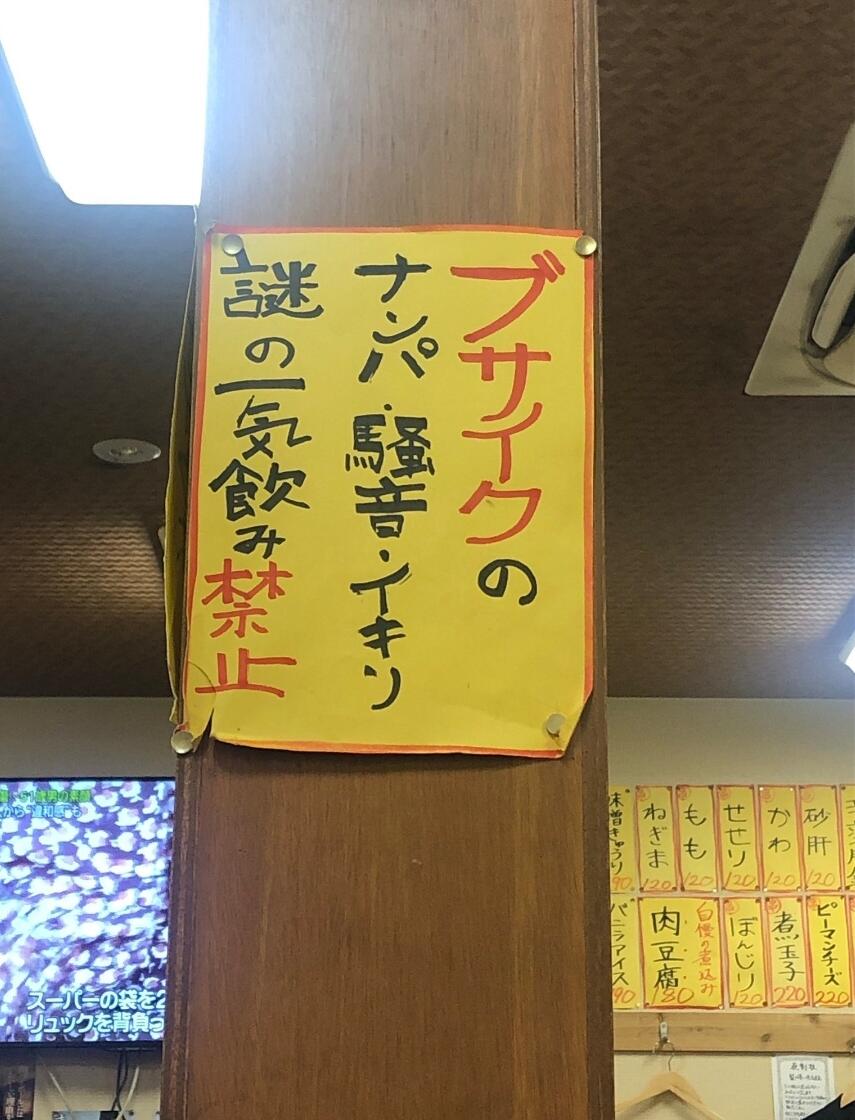 ブサイクの
ナンパ・騒音・イキリ
謎の一気飲み禁止
味噌きゅうり
90
ねぎま
120
もも
120
せせり
120
かわ
120
砂肝
120
バニラアイス
90
自慢の煮込み
肉豆腐
180
ぼんじり
120
煮玉子
220
ピーマンチーズ
220
51歳男の素顔
から“違和感”も
スーパーの袋を2
リュックを背負っ